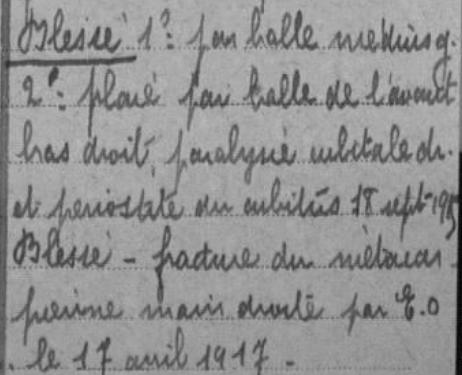 Blessé 1º: par balle medius g.
2º: plaie par balle de l'avant
bras droit, paralysie cubitale dr.
et periostite du cubitus 18 sept 1915
Blessé - fracture du métacar
pienne main droite par E.O
le 17 avril 1917 -